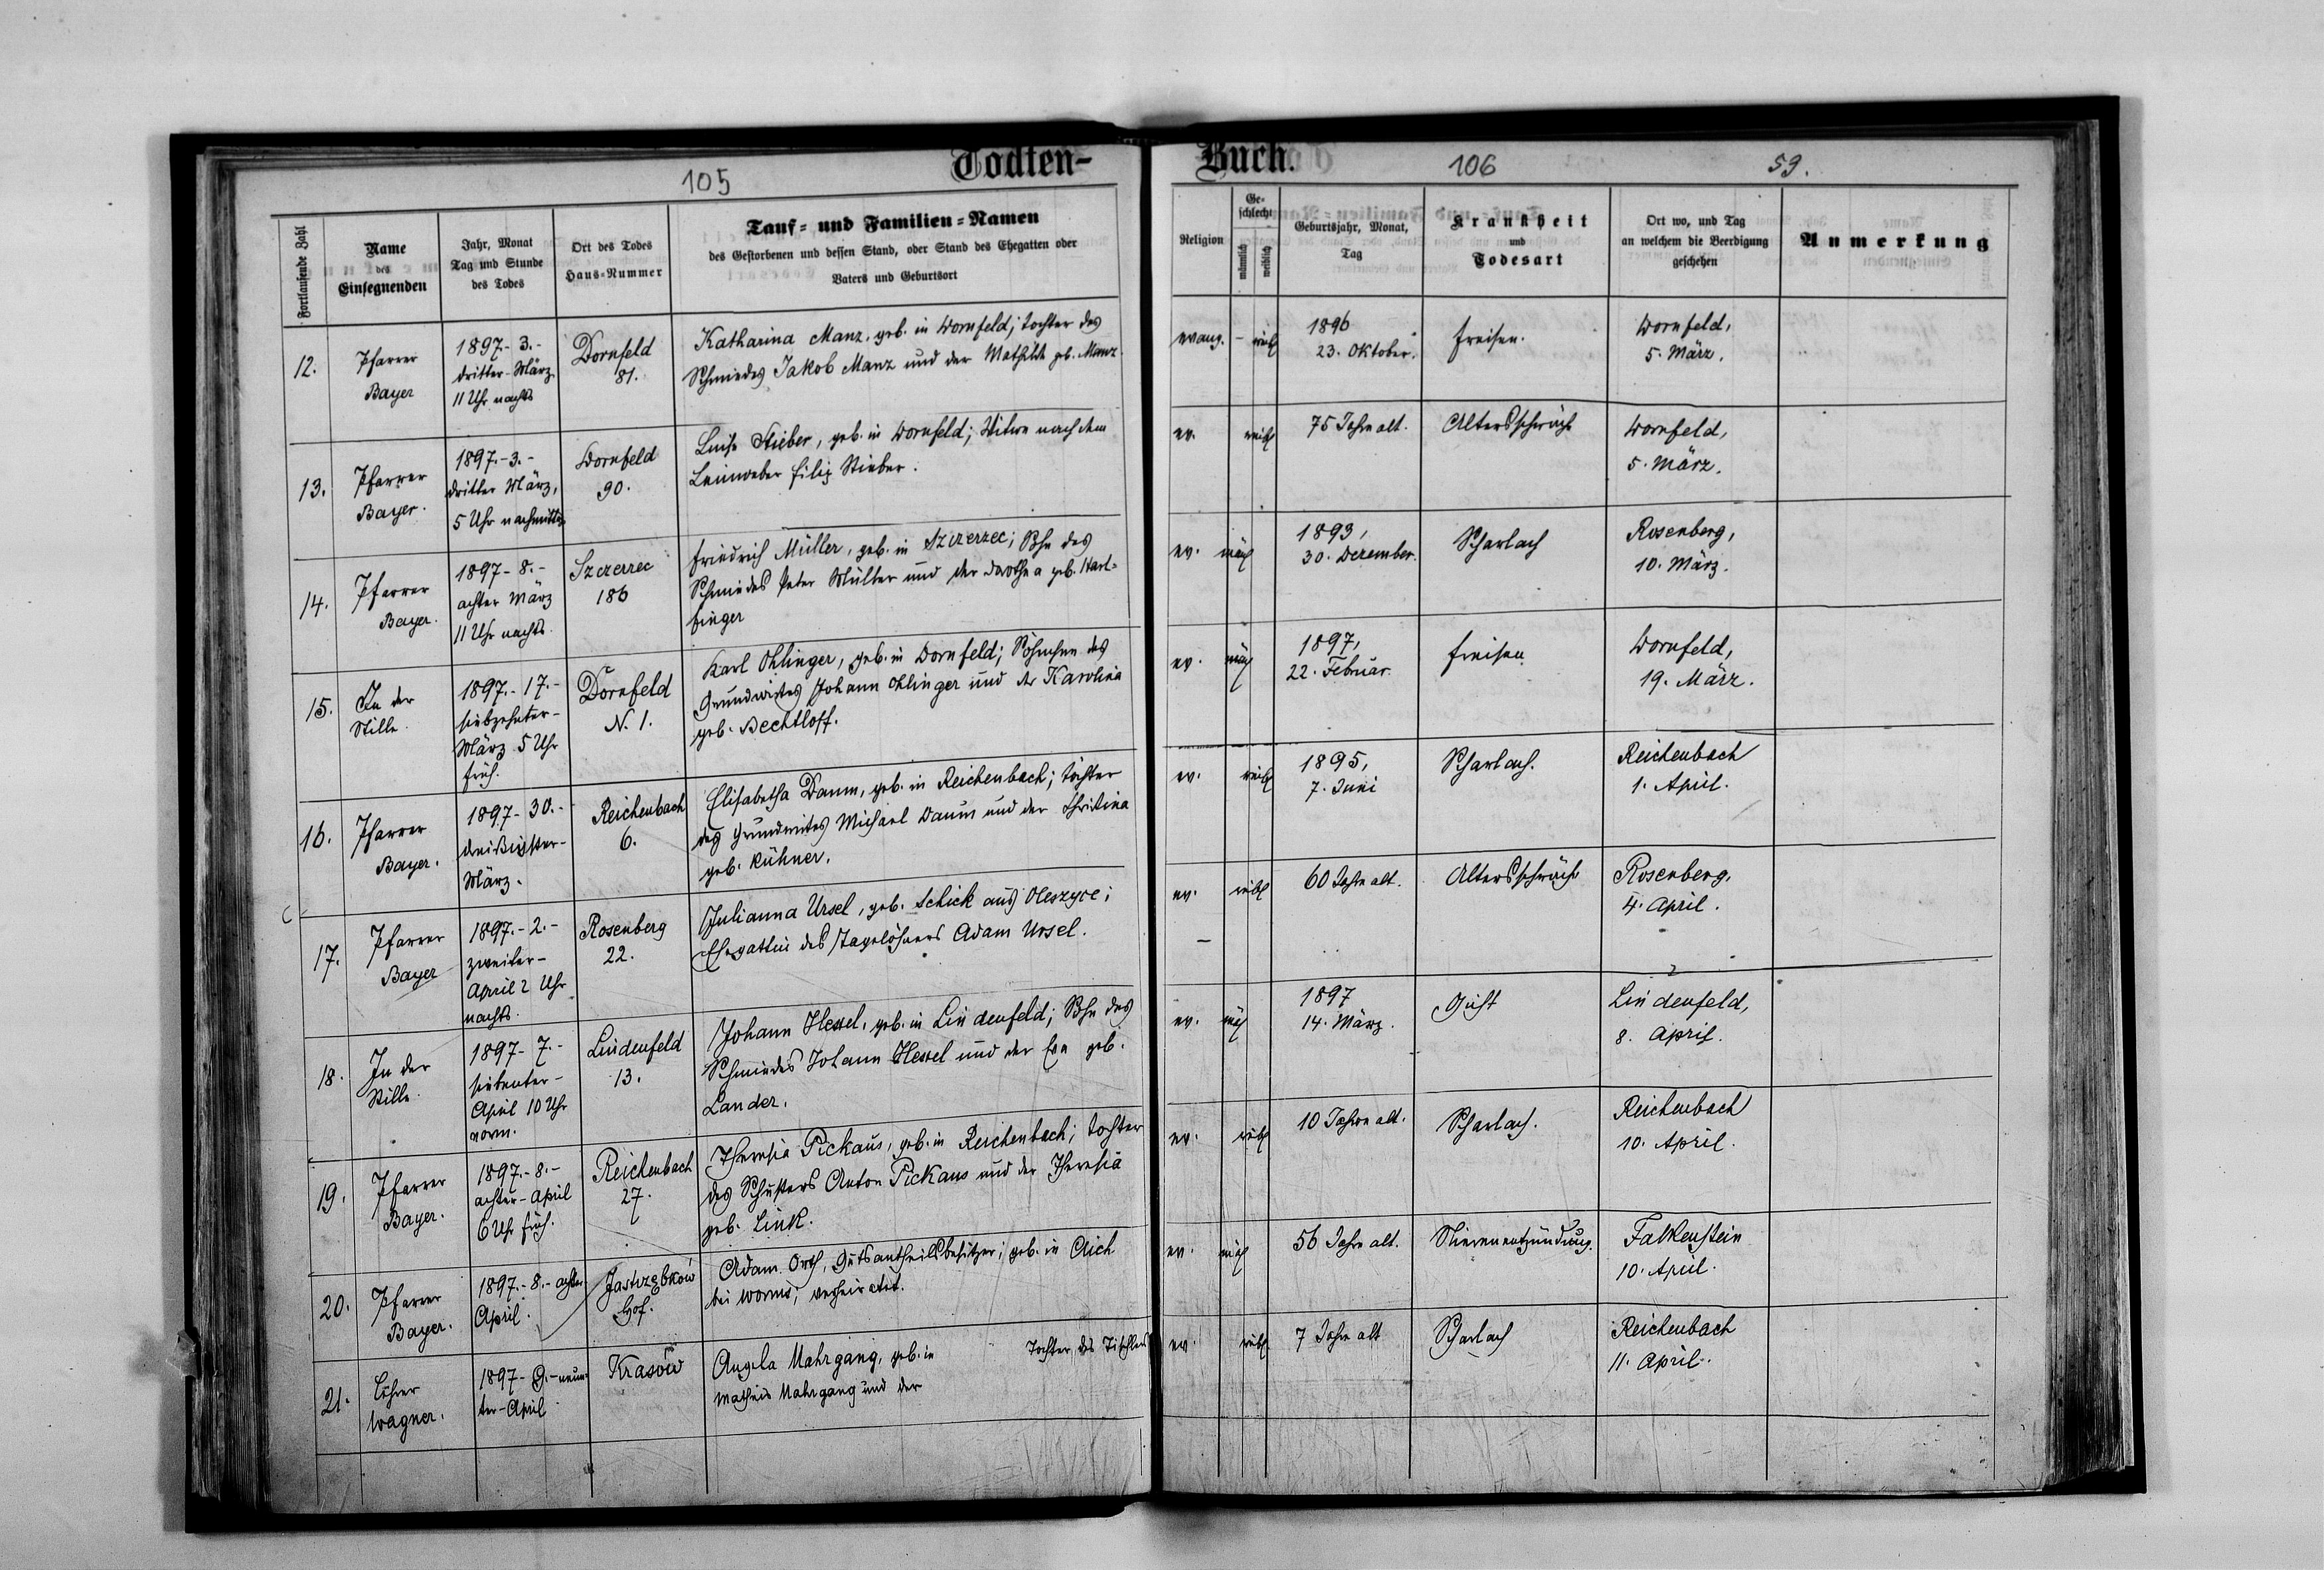 Todten-
Buch.
105
106
59.
Fortlaufende Zahl
Name
des
Einsegnenden
Jahr, Monat
Tag und Stunde
des Todes
Ort des Todes
Haus-Nummer
Tauf- und Familien-Namen
des Gestorbenen und dessen Stand, oder Stand des Ehegatten oder
Vaters und Geburtsort
Religion
Ge-
schlecht
männlich
weiblich
Geburtsjahr, Monat,
Tag
Krankheit
und
Todesart
Ort wo, und Tag
an welchem die Beerdigung
geschehen
Anmerkung
12.
Pfarrer
Bayer
1897-3.-
dritter-März
11 Uhr nachts
Dornfeld
81.
Katharina Manz, geb. in Dornfeld; Tochter des
Schmiedes Jakob Manz und der Mathilde geb. Manz.
evang. - weibl
1896
23. Oktober.
Freisen.
Dornfeld,
5. März.
13.
Pfarrer
Bayer.
1897.-3.-
dritter März,
5 Uhr nachmittag
Dornfeld
90.
Luise Stieber, geb. in Dornfeld; Witwe nach dem
Leinweber Filip Stieber.
ev. weibl
75 Jahre alt.
Altersschwäche
Dornfeld,
5. März.
14.
Pfarrer
Bayer.
1897-8.-
achter März
11 Uhr nachts.
Szczerzec
186
Friedrich Müller, geb. in Szczerzec; Sohn des
Schmiedes Peter Müller und der Dorothea geb. Harl-
finger
ev. mäl
1893,
30. Dezember.
Scharlach
Rosenberg,
10. März.
15.
In der
Stille.
1897.-17.-
siebzehnter-
März 5 Uhr
früh.
Dornfeld
N. 1.
Karl Ohlinger, geb. in Dornfeld; Söhnchen des
Grundwirtes Johann Ohlinger und der Karolina
geb. Bechtloff.
ev. mäl
1897,
22. Februar.
Freisen
Dornfeld,
19. März.
16.
Pfarrer
Bayer.
1897-30.-
dreißigster-
März.
Reichenbach
6.
Elisabetha Daum, geb. in Reichenbach; Tochter
des Grundwirtes Michael Daum und der Christina
geb. Kühner.
ev. weibl
1895,
7. Juni
Scharlach.
Reichenbach
1. April.
17.
Pfarrer
Bayer
1897.-2.-
zweiter-
April 2 Uhr
nachts.
Rosenberg
22.
Julianna Ursel, geb. Schick aus Oleszyce;
Ehegattin des Tagelöhners Adam Ursel.
ev. weibl
60 Jahre alt.
Altersschwäche
Rosenberg,
4. April.
18.
In der
Stille.
1897-7.-
siebenter-
April 10 Uhr
vorm.
Lindenfeld
13.
Johann Hessel, geb. in Lindenfeld; Sohn des
Schmiedes Johann Hessel und der Eva geb.
Lander.
ev. mäl
1897
14. März.
Lindenfeld,
8. April.
19.
Pfarrer
Bayer.
1897.-8.-
achter-April
6 Uhr früh.
Reichenbach
27.
Theresia Pickaus, geb. in Reichenbach; Tochter
des Schusters Anton Pickaus und der Theresia
geb. Link.
ev. weibl
10 Jahre alt.
Scharlach.
Reichenbach
10. April.
20.
Pfarrer
Bayer.
1897.-8.-achter
April.
Jastrzębków
Hof.
Adam Orth, Gutsantheilsbesitzer; geb. in Aich
bei Worms; verheiratet.
ev. mäl
56 Jahre alt.
Nierenentzündung.
Falkenstein
10. April.
21.
Lehrer
Wagner.
1897-9.-neun-
ter-April
Krasów
Angela Mahrgang, geb. in Tochter des Tischlers
Matheis Mahrgang und der
ev. weibl
7 Jahre alt
Scharlach
Reichenbach
11. April.